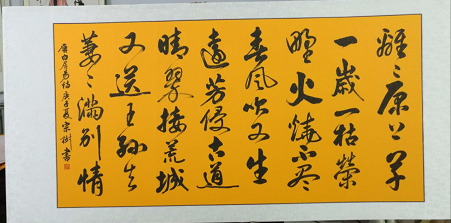 離〻原上草
一歲一枯榮
野火燒不盡
春風吹又生
遠芳侵古道
晴翠接荒城
又送王孫去
萋〻滿別情
唐白居易詩庚子夏宗樹書